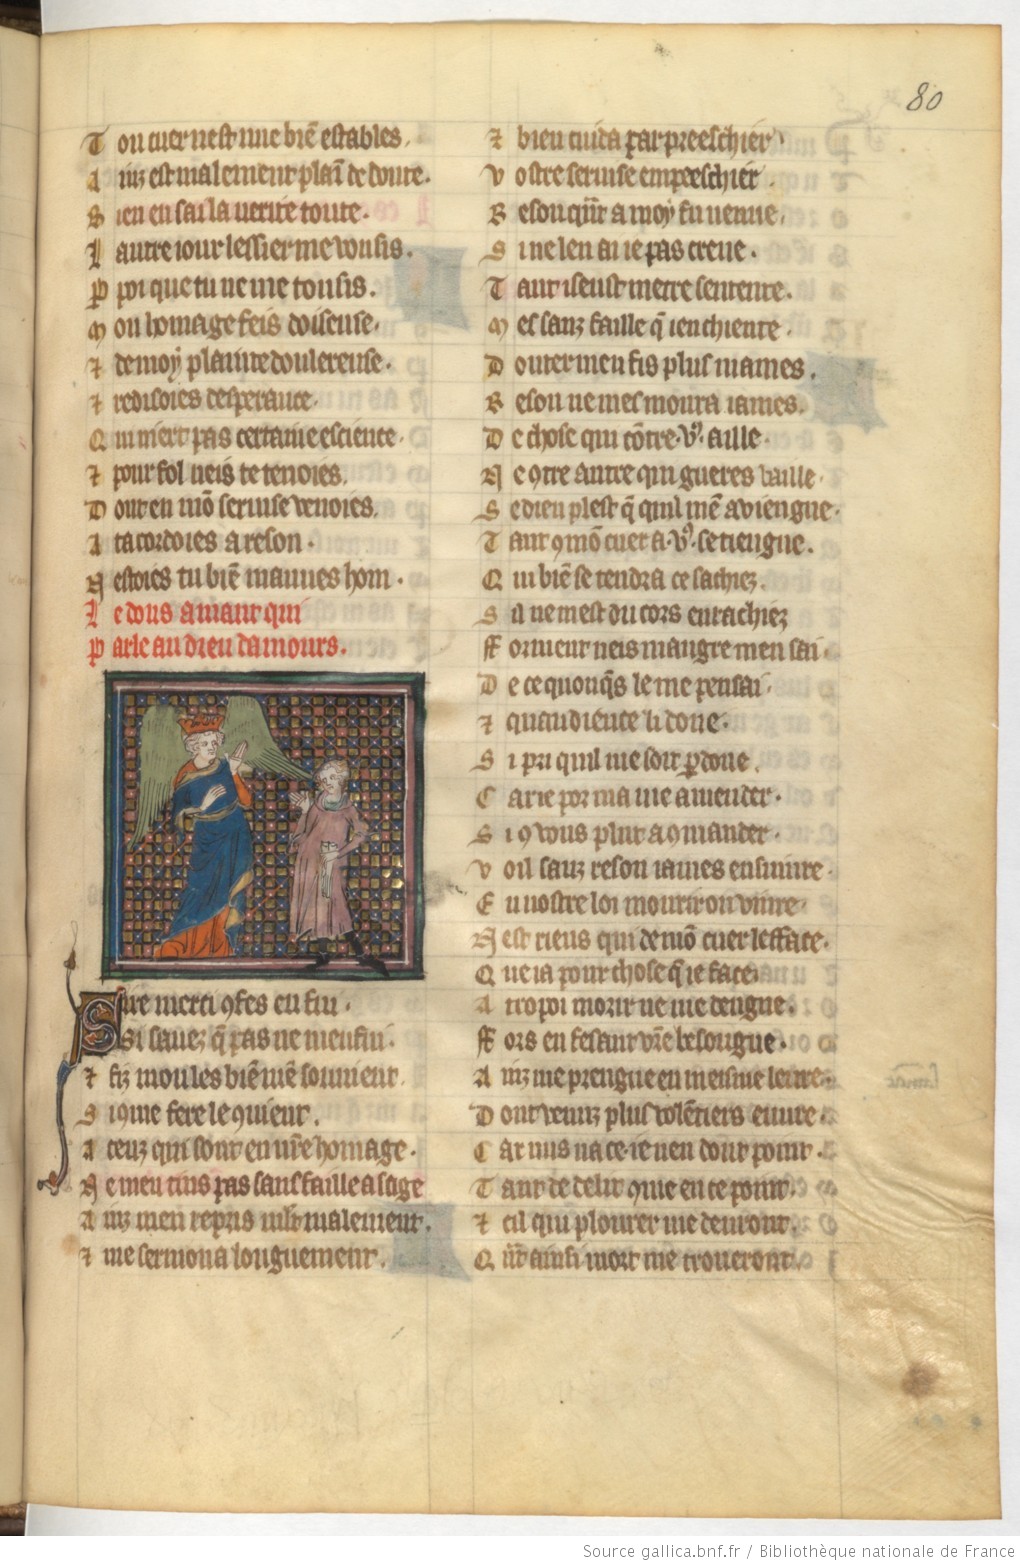 80
T on cuer nest mie biē estables
A inz est malement plaī de doute.
S ien en sai la verite toute.
L autre iour lessier me vousis.
P poi que tu ne me tousis.
M on homage feis doiseuse.
⁊ de moy plainte doulereuse.
⁊ redisoies desperance.
Q ui niert pas certaine esciente.
⁊ pour fol neis te tenoies.
D ont en mō seruise venoies.
A tacordoies a reson.
N estoies tu biē mauues hom.
L e dous amant qui
P arle au dieu damours.
Sire merci ꝯfes en sui.
Si sauez q̄ pas ne men fui.
⁊ fiz mou les biē mē souuient.
S i ꝯme fere le ꝯuient.
A ceuz qui sont en vr̄e homage.
N e men tins pas sans faille a sage
A inz men repris ml̄t malement.
⁊ me sermona longuement.
⁊ bien cuida par preeschier
V ostre seruise empeeschier.
R eson qn̄t a moy fu venue.
S i ne len ai ie pas creue.
T ant i seust metre sentente.
M es sanz faille q̄ ien ch mente.
D outer men fis plus mames.
R eson ne mesmoura iames.
D e chose qui cōtre .v⁹. aille.
N e ꝯtre autre qui gueres vaille.
S e dieu plest q̄ quil mē aviengne.
T ant ꝯ mō cuer a .v⁹. se tiengne.
Q ui biē se tendra ce sachiez.
S il ne mest du cors enrachiez
ff orment neis maugre men sai.
D e ce quonq̄s le me pensai.
⁊ quaudience li done.
S i pri quil me soit ꝑdone.
C ar ie por ma vie amender.
S i ꝯ vous plut a ꝯmander.
V oil sanz reson iames ensuivre.
E n vostre loi mourir ou viure.
N est riens qui de mō cuer lefface.
Q ue ia pour chose q̄ ie face.
A tropoi morir ne me dengne.
ff ors en fesant vr̄e besongne.
A inz me prengne en meisme leuure.
D ont venuz plus volētiers euure.
C ar nus na ce ie nen dout point.
T ant de delit ꝯme en ce point.
⁊ cil qui plourer me deuront.
Q n̄t ainsi mort me troueront.
Source gallica.bnf.fr / Bibliothèque nationale de France